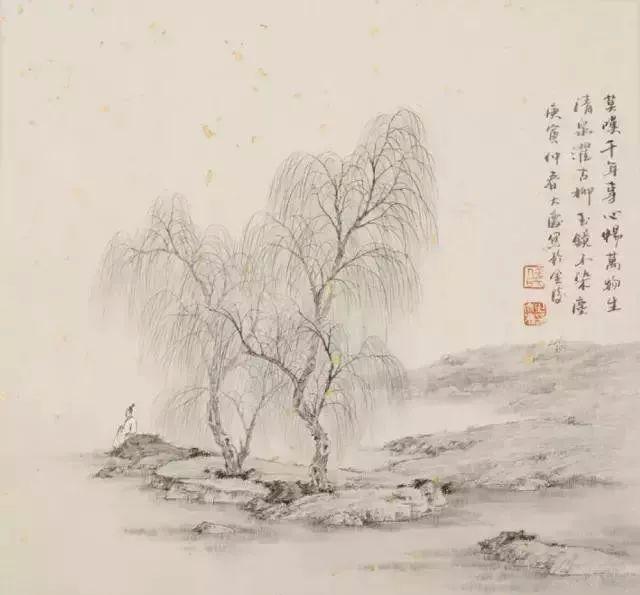 莫嘆千年事心暢萬物生
清泉濯古柳玉鏡不染塵
庚寅仲春大寫於金陵